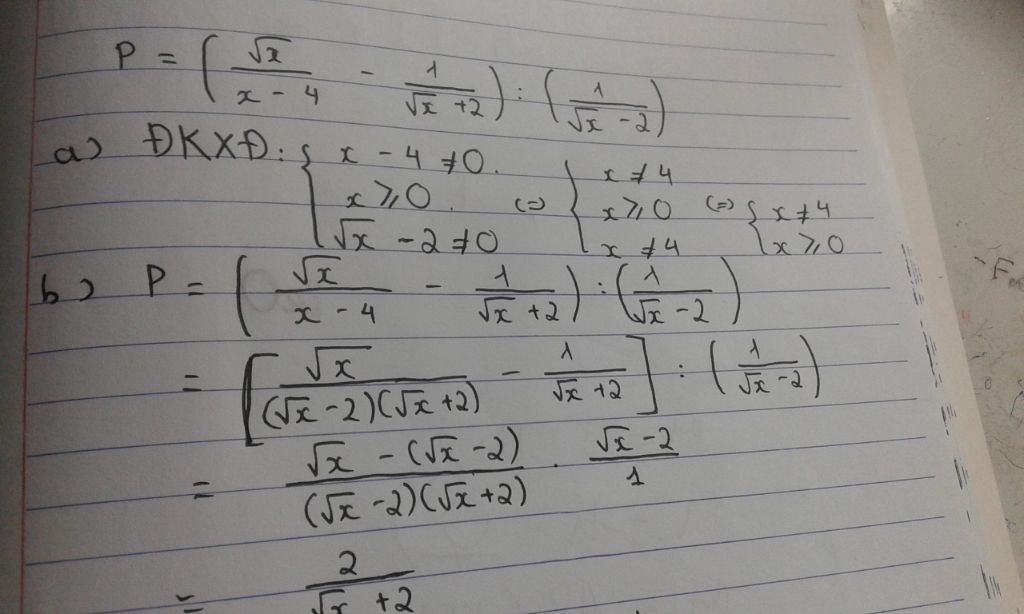 P = ( √x / x - 4 - 1 / √x + 2 ) : ( 1 / √x - 2 )
a) ĐKXĐ: { x - 4 ≠ 0. x ≥ 0. √x - 2 ≠ 0 <=> { x ≠ 4 x ≥ 0 x ≠ 4 <=> { x ≠ 4 x ≥ 0
b) P = ( √x / x - 4 - 1 / √x + 2 ) : ( 1 / √x - 2 )
= [ √x / (√x - 2)(√x + 2) - 1 / √x + 2 ] : ( 1 / √x - 2 )
= √x - (√x - 2) / (√x - 2)(√x + 2) . √x - 2 / 1
= 2 / √x + 2